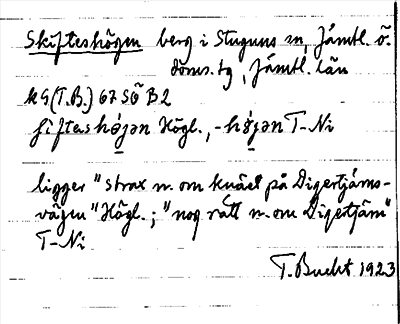 Skifteshögen berg i Stuguns sn, Jämtl. ö.
doms. tg, Jämtl. län
k G (T.B.) 67 SÖ B 2
ʃiftashǿjən Högl., -hǿjən T-Ni
ligger "strax n. om knäet på Digertjärns-
vägen" Högl.; "nog rätt n. om Digertjärn"
T-Ni
T. Bucht 1923